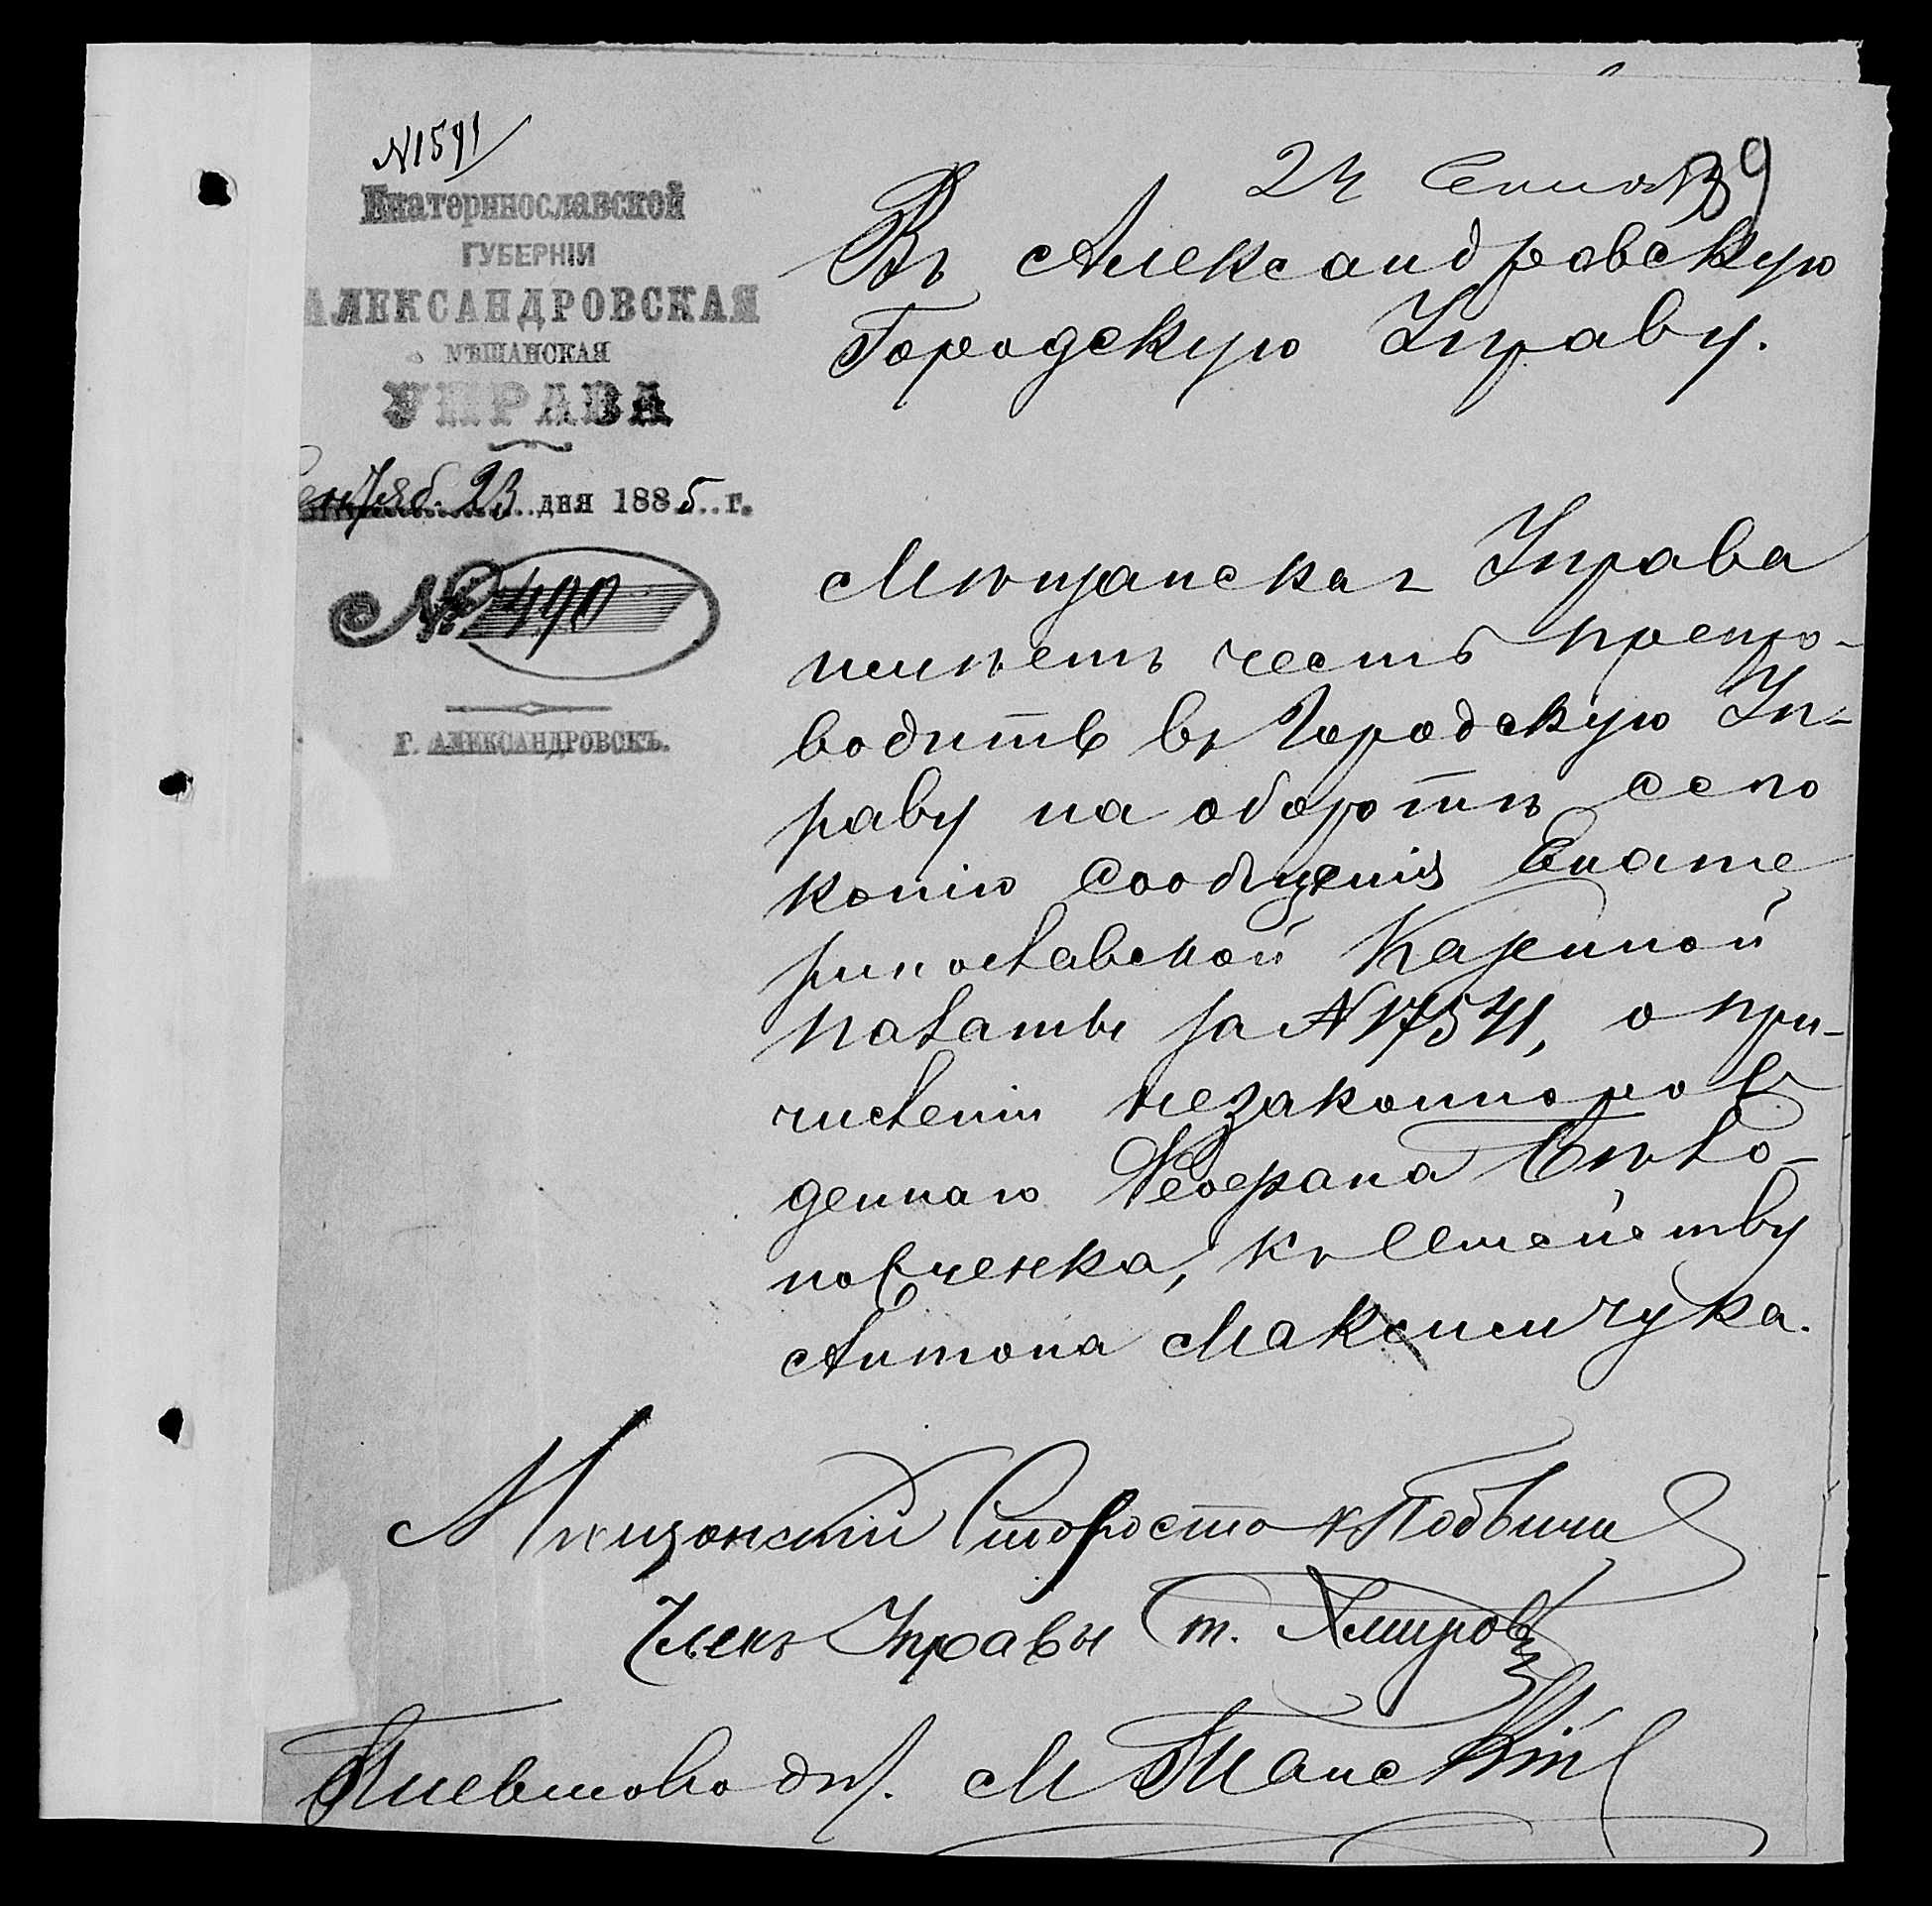 N1591
Екатеринославской
ГУБЕРНІИ
АЛЕКСАНДРОВСКАЯ
МѢЩАНСКАЯ
УПРАВА
Сентяб. 23 дня 1885 г.
№ 490
Г. АЛЕКСАНДРОВСКЪ.
24 Сентяб
39
Въ Александровскую
Городскую Управу.
Мѣщанская Управа
имѣетъ честь препро-
водить въ Городскую Уп-
раву на оборотѣ сего
копію сообщенія Екате
ринославской Казенной
палаты за N 17541, о при-
численіи незаконнорож
деннаго
новченка, къ семейству
Антона Максимчука.
Мѣщанскій Староста
Членъ Управы
М